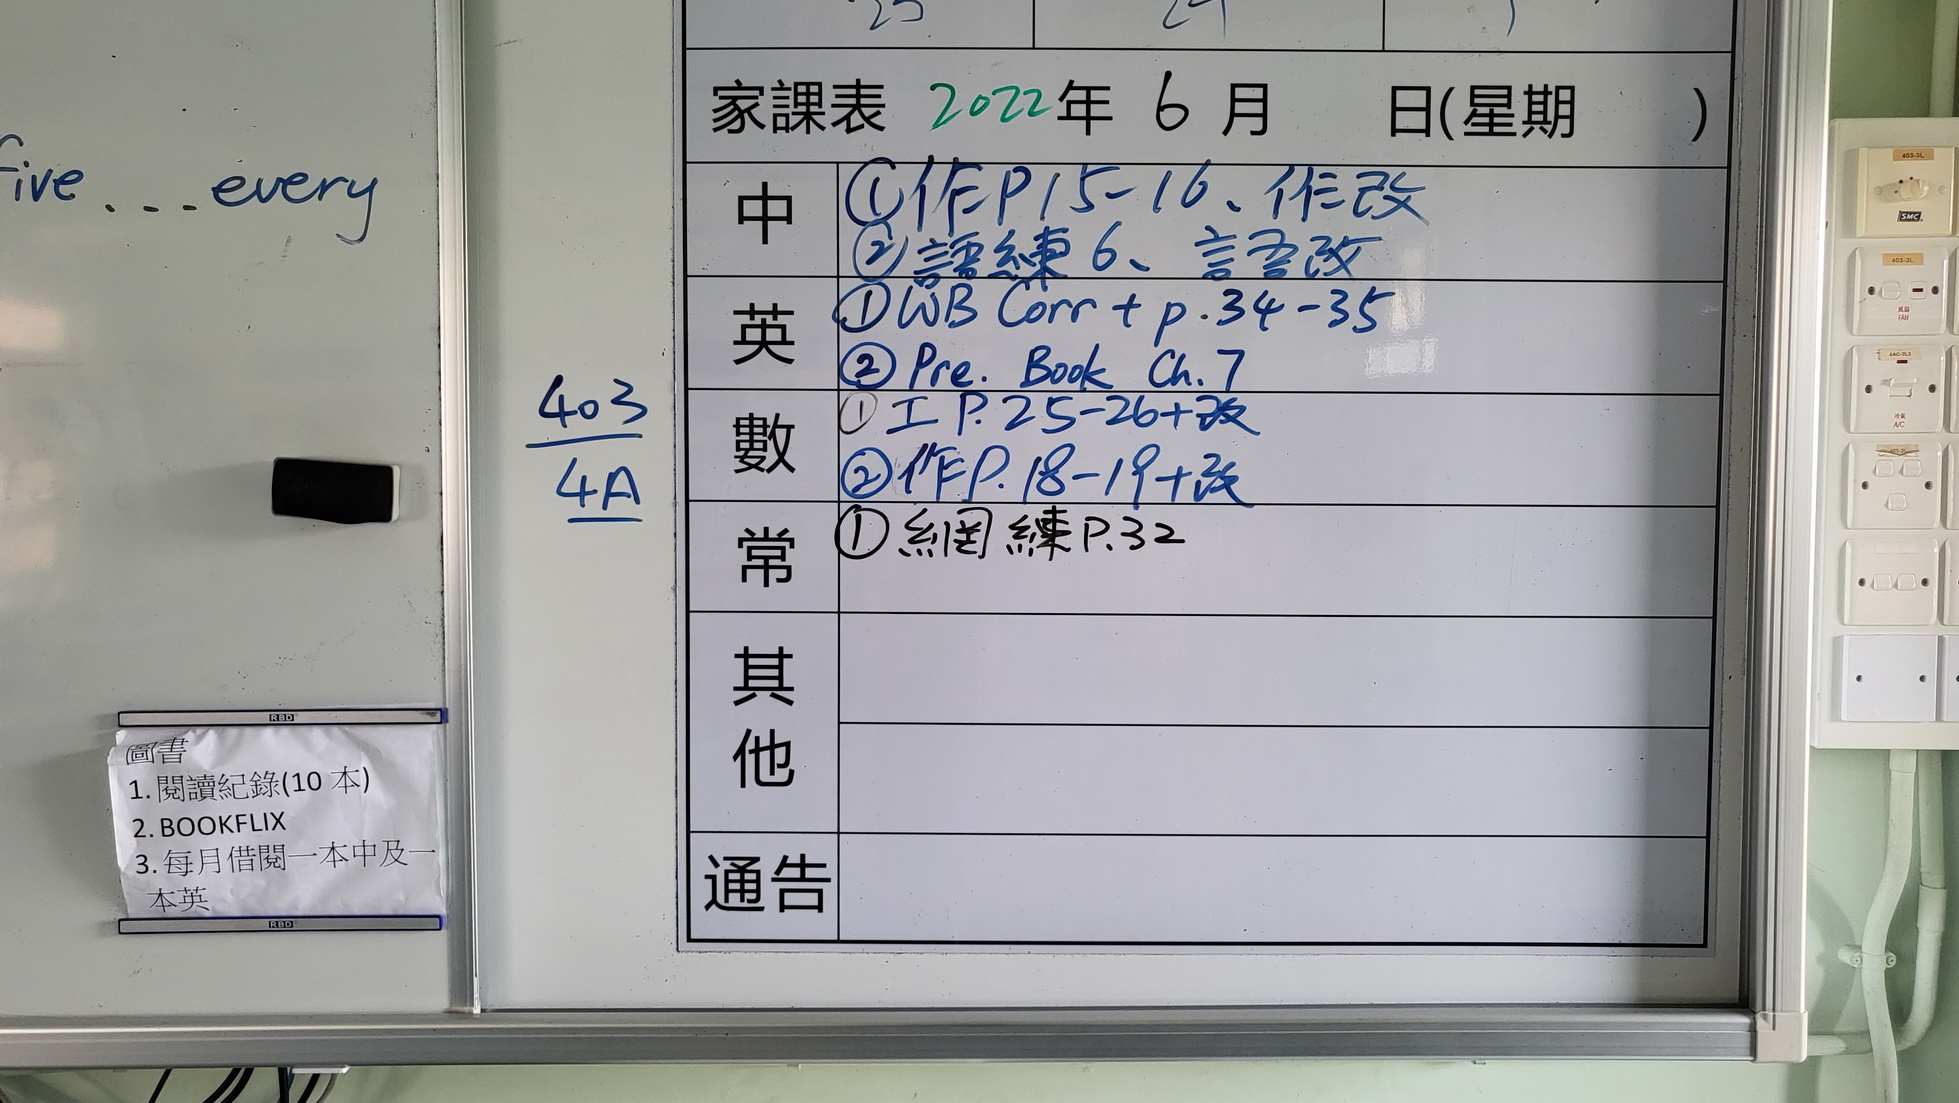 five...every
家課表 2022年 6 月 日(星期 )
中
①作P15-16、作改
②語練6、語改
英
①WB Corr + p.34-35
②Pre. Book Ch.7
數
①工P.25-26+改
②作P.18-19+改
常
①網練P.32
其他
通告
403
4A
RBD
圖書
1. 閱讀紀錄(10 本)
2. BOOKFLIX
3. 每月借閱一本中及一
本英
RBD
403-3L
SMC
403-3L
風扇
FAN
冷氣
A/C